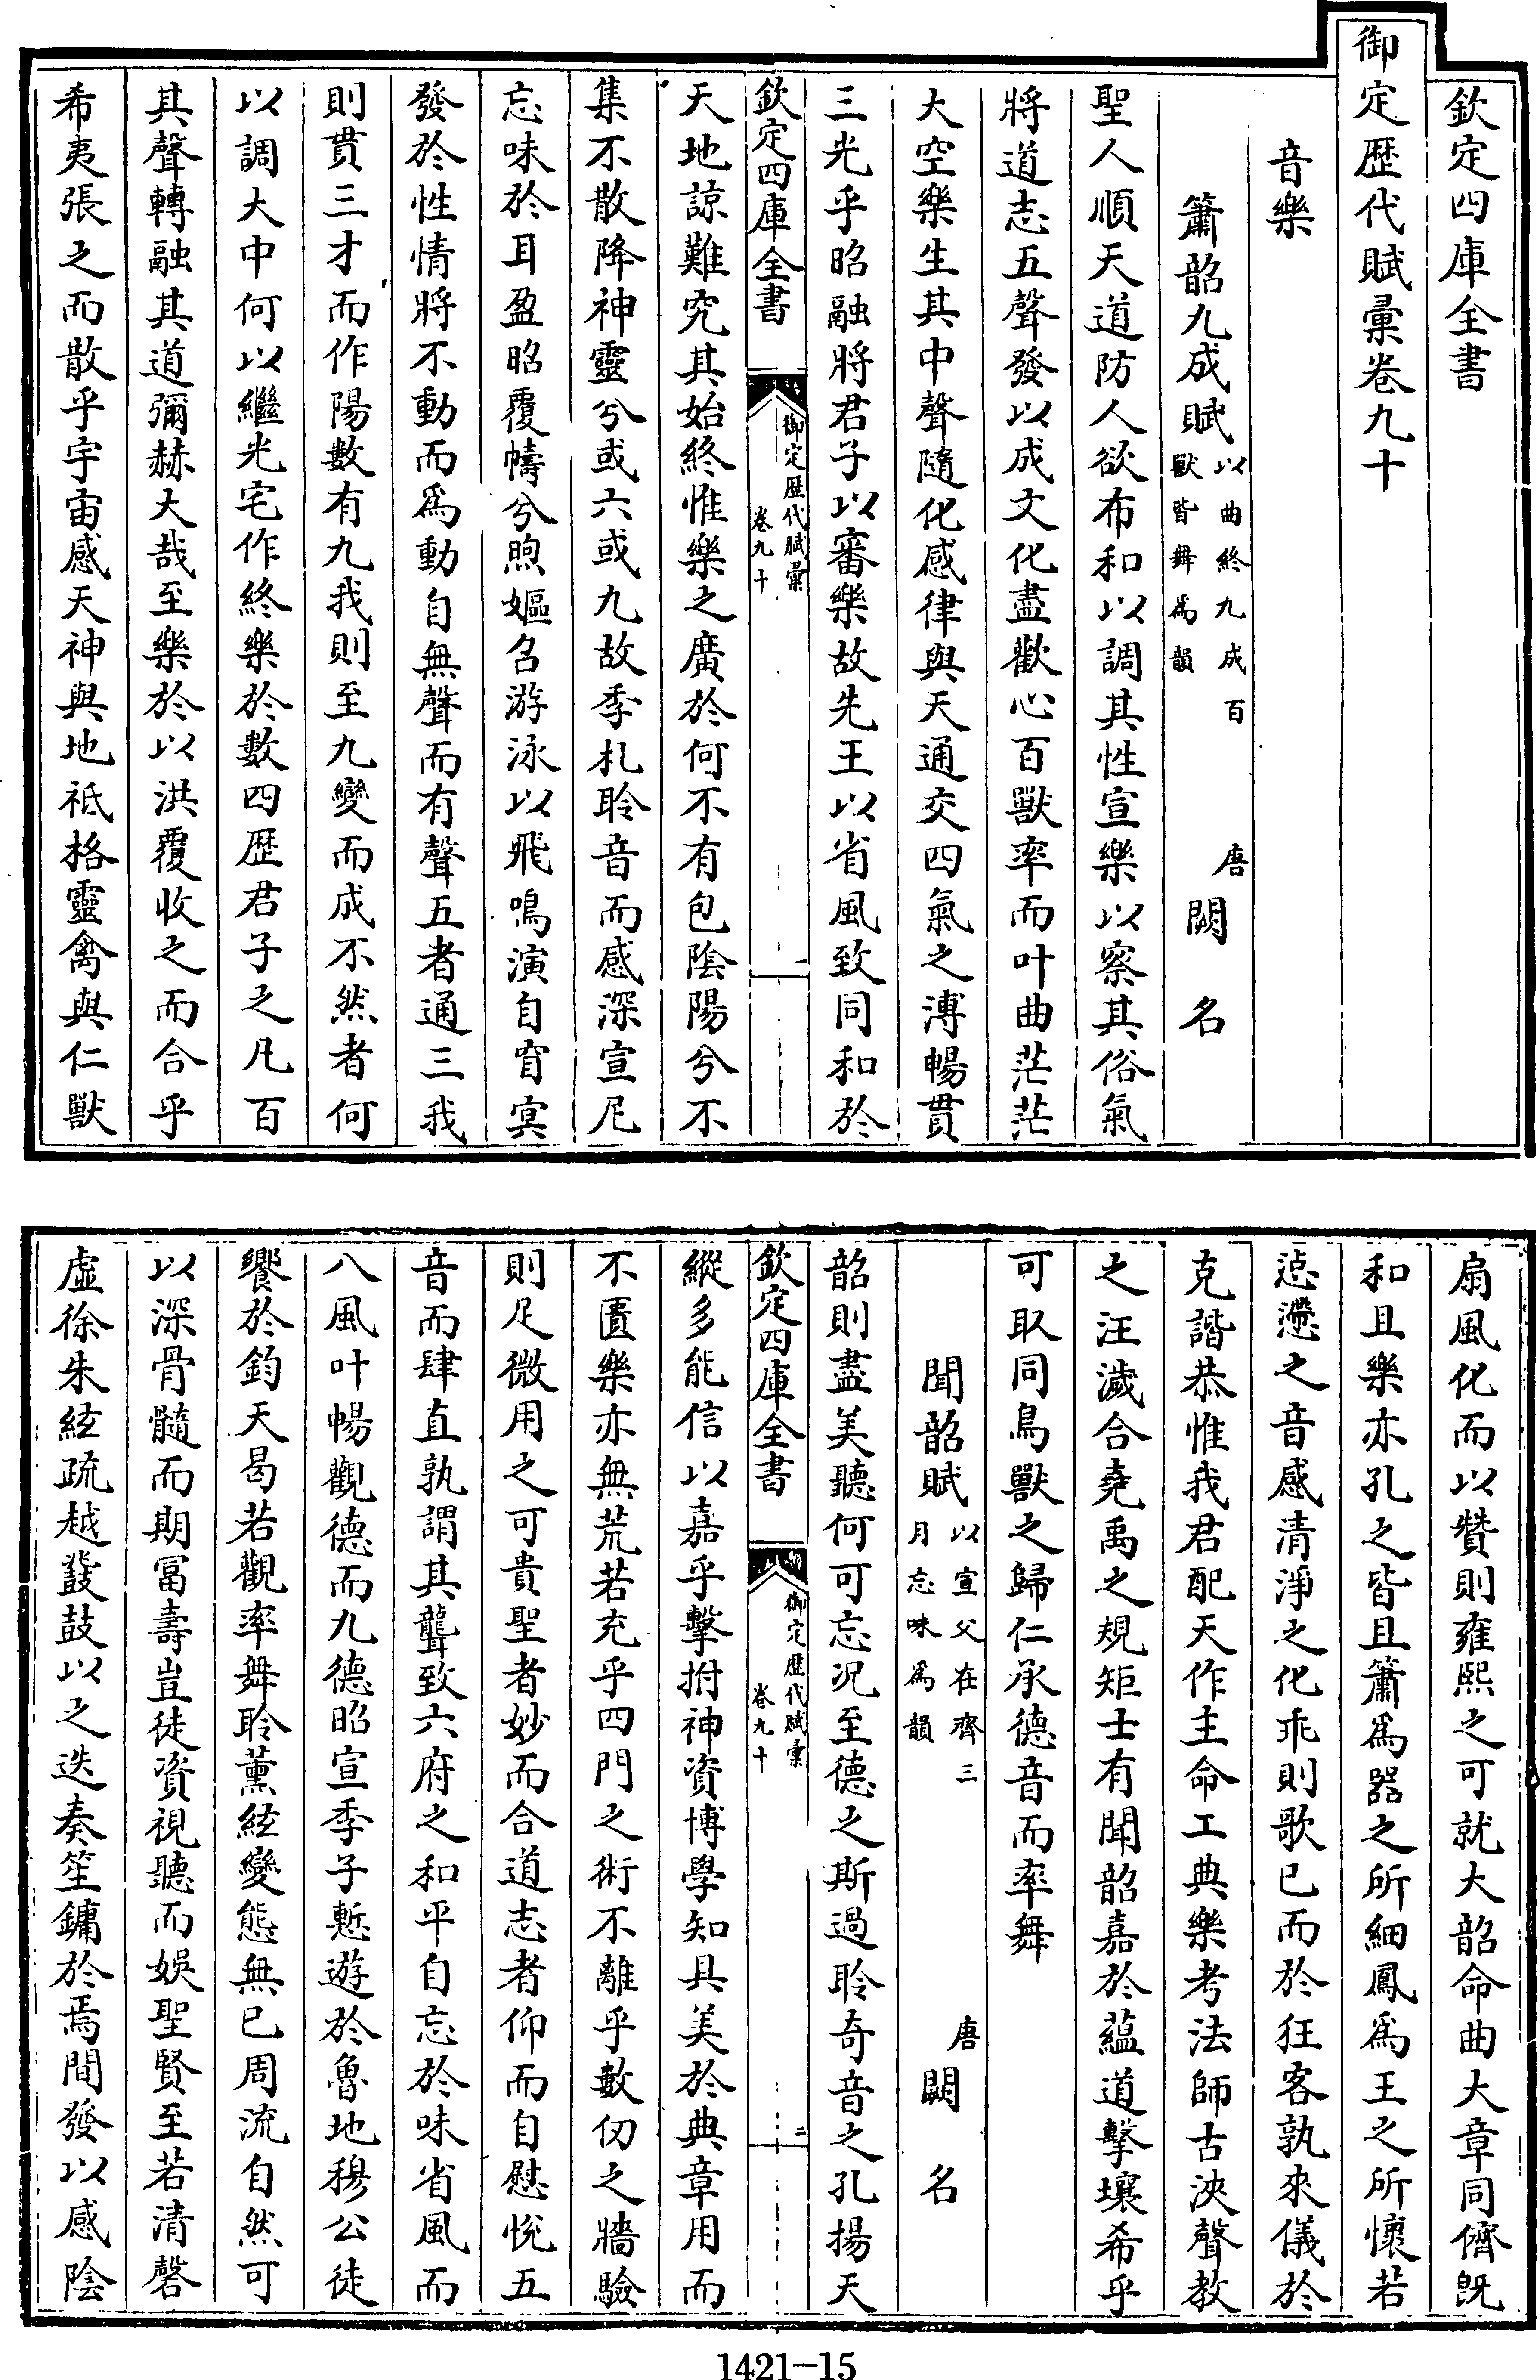 欽定四庫全書
御定歷代賦彙卷九十
音樂
簫韶九成賦以曲終九成百獸皆舞為韻 唐闕名
聖人順天道防人欲布和以調其性宣樂以察其俗氣
將道志五聲發以成文化盡歡心百獸率而叶曲茫茫
大空樂生其中聲隨化感律與天通交四氣之溥暢貫
三光乎昭融將君子以審樂故先王以省風致同和於
欽定四庫全書 御定歷代賦彙 卷九十 一
天地諒難究其始終惟樂之廣於何不有包陰陽兮不
集不散降神靈兮或六或九故季札聆音而感深宣尼
忘味於耳盈昭覆幬兮煦嫗名游泳以飛鳴演自窅冥
發於性情將不動而為動自無聲而有聲五者通三我
則貫三才而作陽數有九我則至九變而成不然者何
以調大中何以繼光宅作終樂於數四歷君子之凡百
其聲轉融其道彌赫大哉至樂於以洪覆收之而合乎
希夷張之而散乎宇宙感天神與地祗格靈禽與仁獸
扇風化而以贊則雍熙之可就大韶命曲大章同儕既
和且樂亦孔之皆且簫為器之所細鳳為王之所懷若
惉懘之音感清淨之化乖則歌已而於狂客孰來儀於
克諧恭惟我君配天作主命工典樂考法師古浹聲教
之汪濊合堯禹之規矩士有聞韶嘉於蘊道擊壤希乎
可取同鳥獸之歸仁承德音而率舞
聞韶賦以宣父在齊三月忘味為韻 唐闕名
韶則盡美聽何可忘況至德之斯過聆奇音之孔揚天
欽定四庫全書 御定歷代賦彙 卷九十 二
縱多能信以嘉乎擊拊神資博學知具美於典章用而
不匱樂亦無荒若充乎四門之術不離乎數仞之牆驗
則足微用之可貴聖者妙而合道志者仰而自慰悅五
音而肆直孰謂其聾致六府之和平自忘於味省風而
八風叶暢觀德而九德昭宣季子慙遊於魯地穆公徒
饗於鈞天曷若觀率舞聆薰絃變態無已周流自然可
以深骨髓而期冨壽豈徒資視聽而娛聖賢至若清磬
虛徐朱絃疏越鼗鼓以之迭奏笙鏞於焉間發以感陰
1421-15